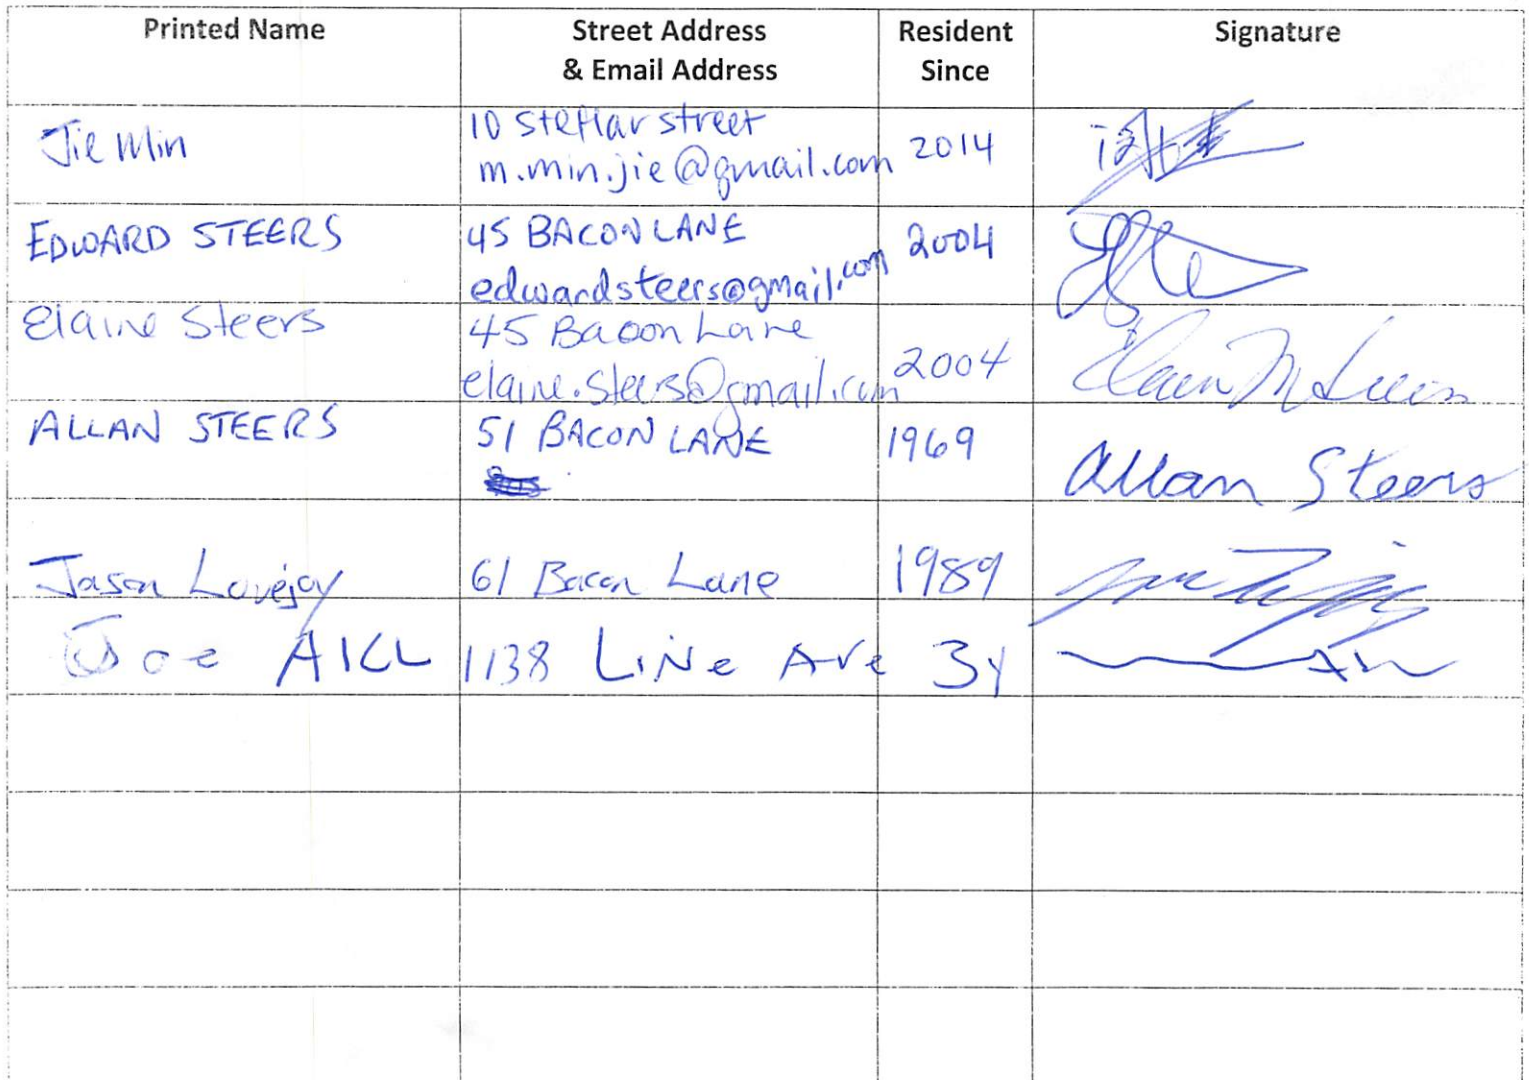 Printed Name
Street Address
& Email Address
Resident
Since
Signature
Jie Min
10 Steflar street
m.min.jie@gmail.com
2014
EDWARD STEERS
45 BACON LANE
edwardsteers@gmail.com
2004
Elaine Steers
45 Bacon Lane
elaine.steers@gmail.com
2004
ALLAN STEERS
51 BACON LANE
1969
Allan Steers
Jason Lovejoy
61 Bacon Lane
1989
Joe AICL
1138 LiNe Ave
3y